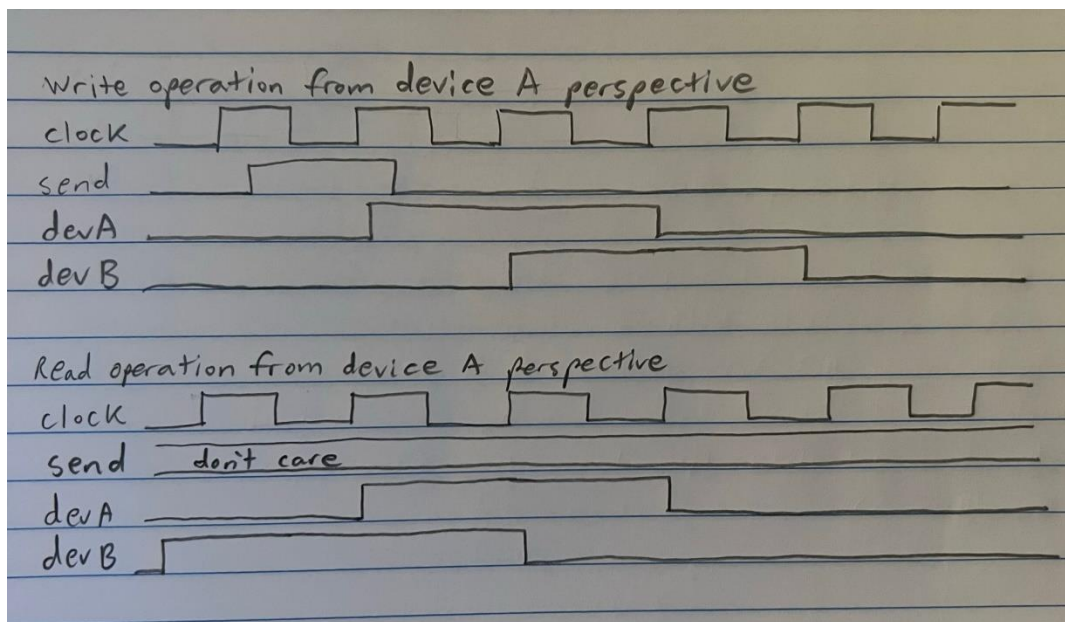 Write operation from device A perspective
clock
send
devA
dev B
Read operation from device A perspective
clock
send don't care
devA
dev B